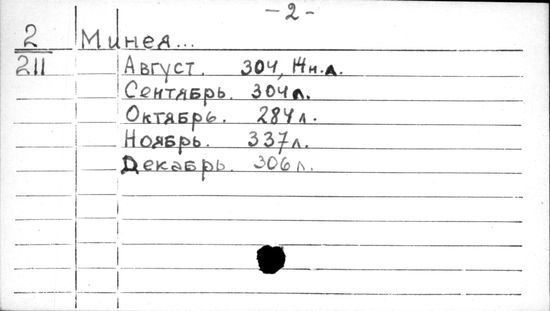 - 2 -
2 Минея...
211 Август. 304, Жн.л.
Сентябрь. 304л.
Октябрь. 284л.
Ноябрь. 337л.
Декабрь. 306л.